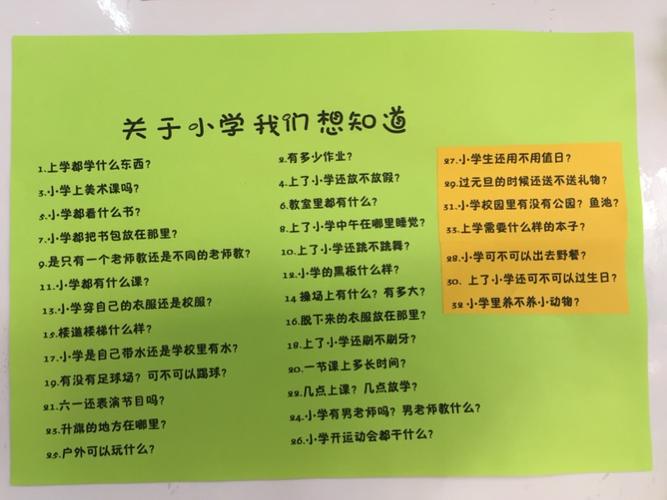 关于小学我们想知道
1.上学都学什么东西？
3.小学上美术课吗？
5.小学都看什么书？
7.小学都把书包放在那里？
9.是只有一个老师教还是不同的老师教？
11.小学都有什么课？
13.小学穿自己的衣服还是校服？
15.楼道楼梯什么样？
17.小学是自己带水还是学校里有水？
19.有没有足球场？可不可以踢球？
21.六一还表演节目吗？
23.升旗的地方在哪里？
25.户外可以玩什么？
2.有多少作业？
4.上了小学还放不放假？
6.教室里都有什么？
8.上了小学中午在哪里睡觉？
10.上了小学还跳不跳舞？
12.小学的黑板什么样？
14 操场上有什么？有多大？
16.脱下来的衣服放在那里？
18.上了小学还刷不刷牙？
20.一节课上多长时间？
22.几点上课？几点放学？
24.小学有男老师吗？男老师教什么？
26.小学开运动会都干什么？
27.小学生还用不用值日？
29.过元旦的时候还送不送礼物？
31.小学校园里有没有公园？鱼池？
33.上学需要什么样的本子？
28.小学可不可以出去野餐？
30. 上了小学还可不可以过生日？
32 小学里养不养小动物？